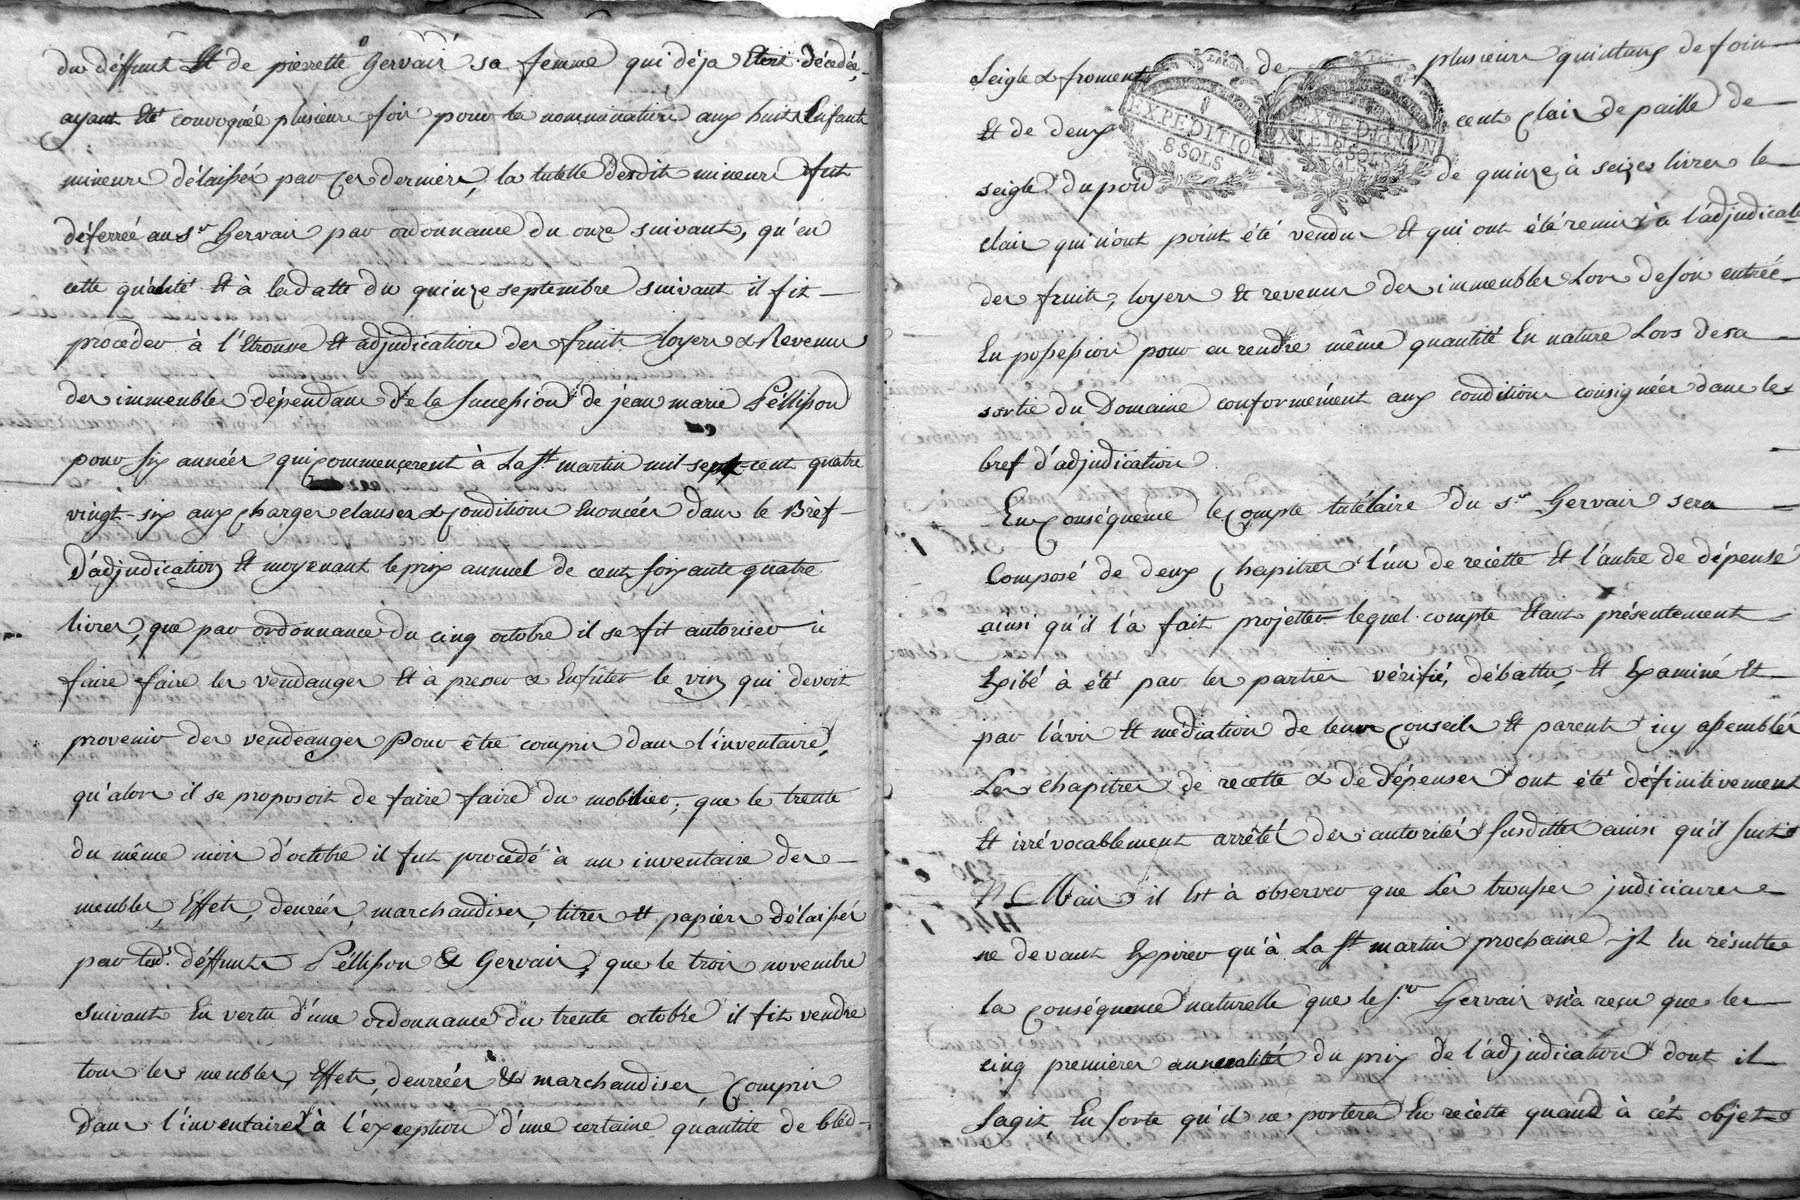 du déffunt Et de pierrette Gervais sa femme qui déja Etoit décédée,
ayant Eté convoquée plusieurs fois pour la nomminature aux huit Enfants
mineurs délaissés par ces derniers, la tutelle desdits mineurs fut
déferrée au Sr Gervais par ordonnance du onze suivant, qu'en
cette qualité Et à la datte du quinze septembre suivant il fit
procéder à l'Etrousse Et adjudication des fruits loyers & Revenus
des immeubles dépendans de la Succession de jean marie Péllisson
pour six années qui commençerent à La St martin mil sept-cent quatre
vingt-six aux charges clauses & conditions Enoncées dans le Bref
D'adjudication Et moyenant le prix annuel de cent soixante quatre
livres, que par ordonnance du cinq octobre il se fit autoriser à
faire faire les vendanges Et à presser & Enfuter le vin qui devoit
provenir des vendeanges pour être compris dans l'inventaire,
qu'alors il se proposoit de faire faire du mobilier, que le trente
du même mois d'octobre il fut procédé à un inventaire des
meubles, Effets, denrées, marchandises, titres Et papiers délaissés
par lesd. déffunts Péllisson & Gervais, que le trois novembre
suivant En vertu d'une ordonnance du trente octobre il fit vendre
tous les meubles, Effets, denrées & marchandises, compris
Dans l'inventaire à l'éxception d'une certaine quantité de bled
seigle & froment de plusieurs quintaux de foin
Et de deux cent clais de paille de
seigle du poid de quinze à seize livres le
clais qui n'ont point été vendus Et qui ont été remis à l'adjudicat
des fruits, loyers Et revenus des immeubles Lors de son entrée
En possession pour en rendre même quantité En nature Lors de sa
sortie du Domaine conformément aux conditions consignées dans le
bref d'adjudication
En conséquence le compte tutélaire du Sr Gervais sera
Composé de deux chapitres l'un de recétte Et l'autre de dépense
ainsi qu'il l'a fait projetter lequel compte Etant présentement
Exibé à été par les parties vérifié, débattu, Et Examiné Et
par l'avis Et médiation de leurs conseils Et parents icy assemblés
Les chapitres de recette & de dépenses ont été définitivement
Et irrévocablement arrêtés des autorités susdittes ainsi qu'il suit
Mais il Est à observer que Les trousses judiciaires
ne devant Expirer qu'à La St martin prochaine il En résulte
la conséquence naturelle que le Sr Gervais n'a reçu que les
cinq premieres annualités du prix de l'adjudication dont il
s'agit, En sorte qu'il ne portera En recétte quand à cet objet
EXPEDITION
8 SOLS
EXPEDITION